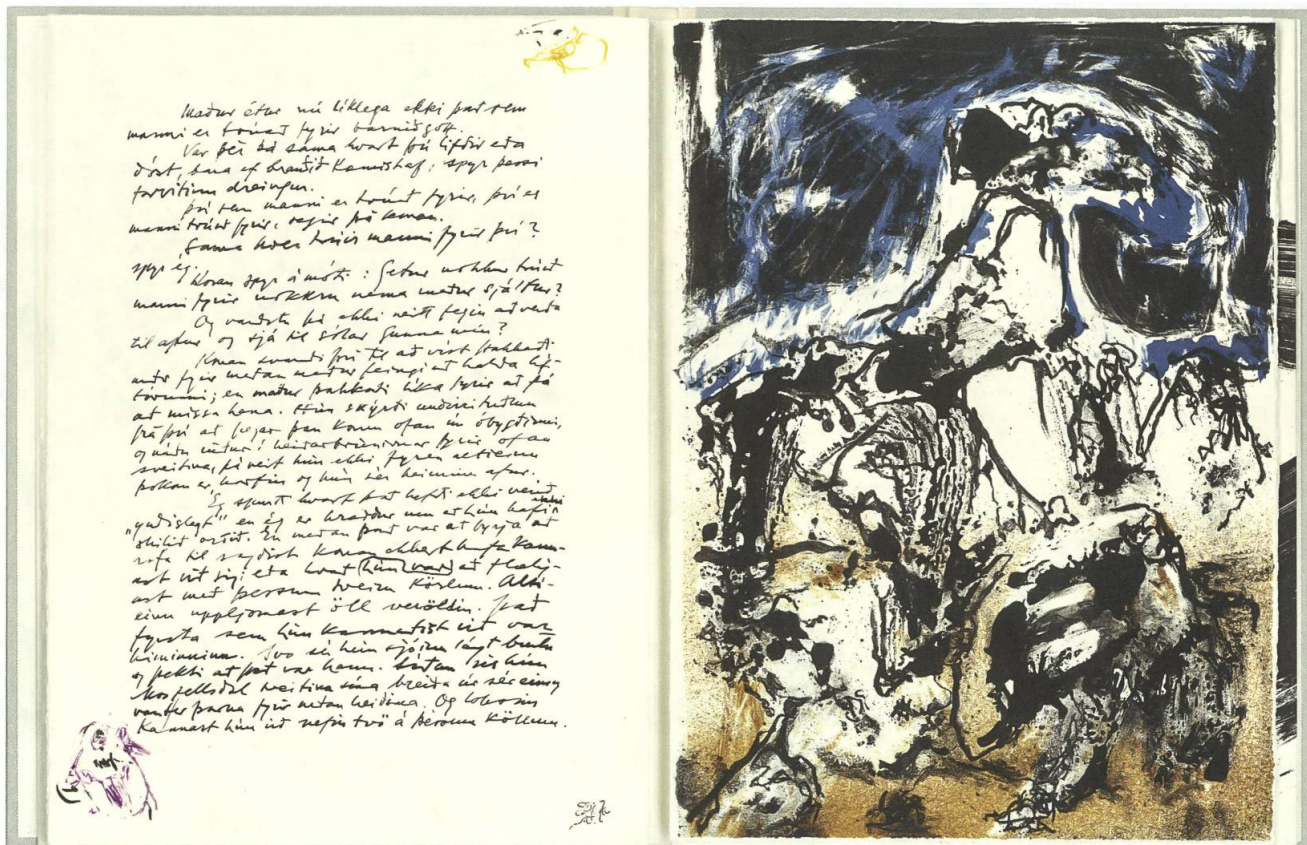 Maður étur nú líklega ekki það sem
manni er trúað fyrir barnið gott.
Var þér þá sama hvort þú lifðir eða
dóst, bara ef brauðið kæmist af, spyr þessi
forvitinn dreingur.
Því sem manni er trúað fyrir, því er
manni trúað fyrir, segir þá konan.
Sama hver trúir manni fyrir því?
spyr ég.
Konan spyr á móti: Getur nokkur trúað
manni fyrir nokkru nema maður sjálfur?
Og varðstu þá ekki neitt fegin að verða
til aftur og sjá til sólar Gunna mín?
Konan svaraði því til að víst þakkaði
maðr fyrir meðan maður feingi að halda líf-
tórunni; en maður þakkaði líka fyrir að fá
að missa hana. Hún skýrði undirrituðum
frá því að þegar þau komu ofan úr óbygðinni,
og náðu niðrí heiðarbrúnirnar fyrir ofan
sveitina, þá veit hún ekki fyren altíeinu
þokan er horfin og hún sér heiminn aftur.
Ég spurði hvort það hefði ekki verið
"yndislegt" en ég er hræddur um að hún hafi ekki
skilið orðið. En meðan það var að byrja að
rofa til sagðist konan ekkert hafa kann-
ast við sig eða hvað hún var að thelj-
ast með þessum tveim körlum. Altí-
einu uppljómast öll veröldin. Það
fyrsta sem hún kannaðist við var
himinninn. Svo sá hún sjóinn lágt burtu
og þekti að það var hann. Síðan sér hún
sveitina sína breiða úr sér einsog
vant er þarna fyrir neðan heiðina. Og loksins
kannast hún við nefin tvö á þessum köllum.